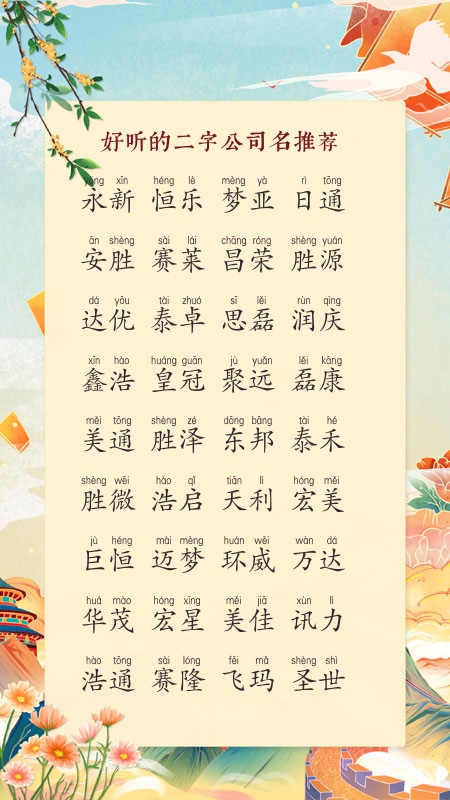 好听的二字公司名推荐
yǒng xīn héng lè mèng yà rì tōng
永新 恒乐 梦亚 日通
ān shèng sài lái chāng róng shèng yuán
安胜 赛莱 昌荣 胜源
dá yōu tài zhuó sī lěi rùn qìng
达优 泰卓 思磊 润庆
xīn hào huáng guān jù yuǎn lěi kāng
鑫浩 皇冠 聚远 磊康
měi tōng shèng zé dōng bāng tài hé
美通 胜泽 东邦 泰禾
shèng wēi hào qǐ tiān lì hóng měi
胜微 浩启 天利 宏美
jù héng mài mèng huán wēi wàn dá
巨恒 迈梦 环威 万达
huá mào hóng xīng měi jiā xùn lì
华茂 宏星 美佳 讯力
hào tōng sài lóng fēi mǎ shèng shì
浩通 赛隆 飞玛 圣世